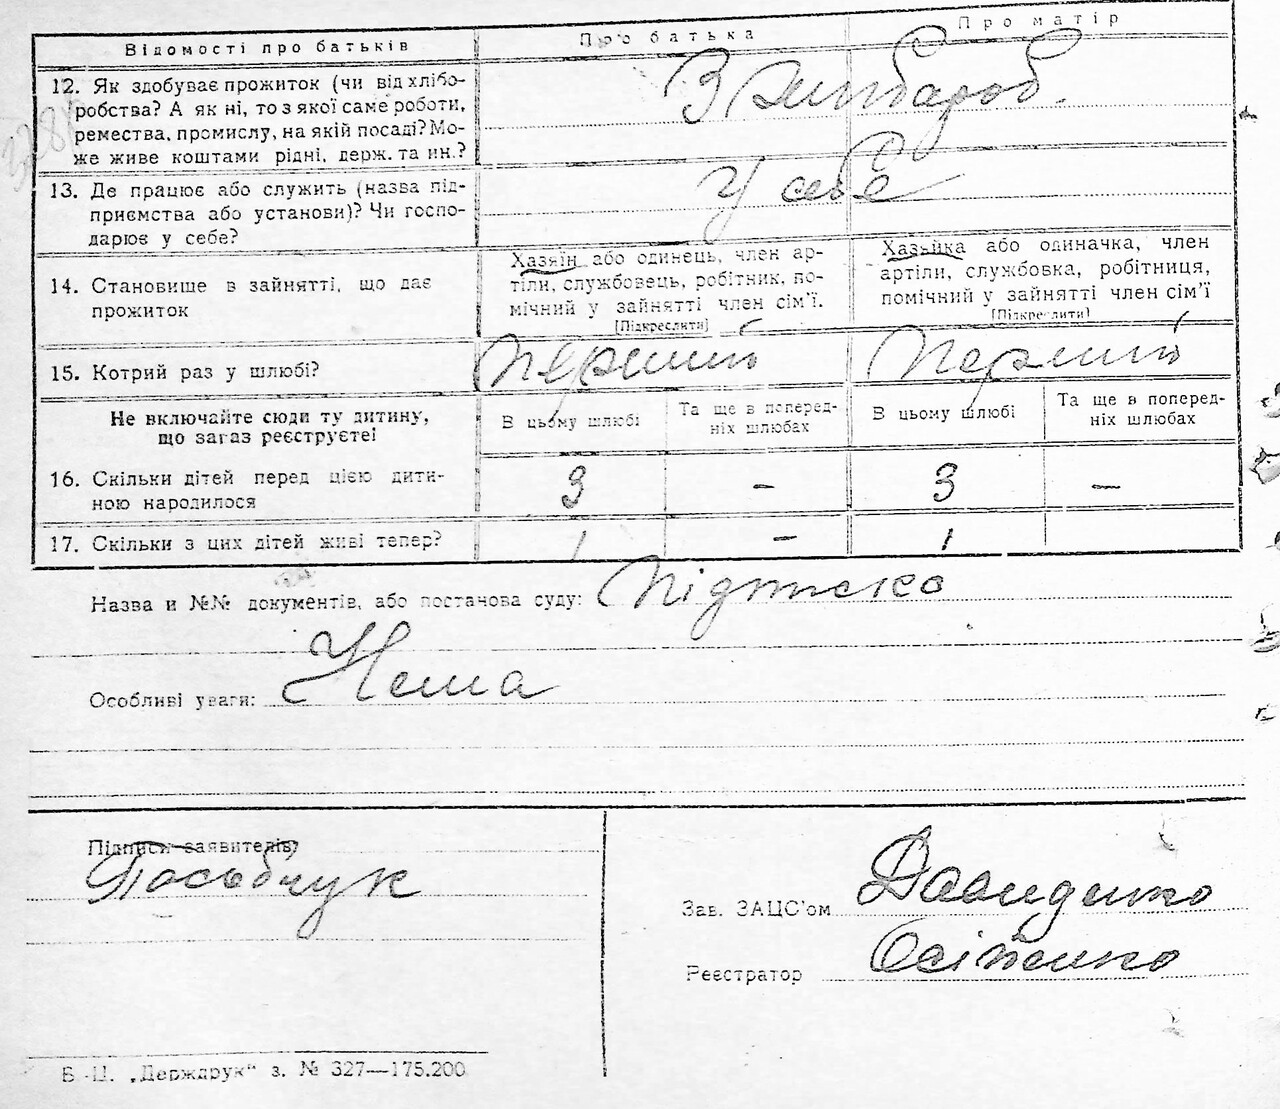 Відомості про батьків Про батька Про матір
12. Як здобуває прожиток (чи від хлібо-
робства? А як ні, то з якої саме роботи,
ремества, промислу, на якій посаді? Мо-
же живе коштами рідні, держ. та ин.?
З
13. Де працює або служить (назва під-
приємства або установи)? Чи госпо-
дарює у себе?
У себе
14. Становище в зайнятті, що дає
прожиток
Хазяїн або одинець, член ар-
тіли, службовець, робітник, по-
мічний у зайнятті член сім'ї.
[Підкреслити]
Хазяйка або одиначка, член
артіли, службовка, робітниця,
помічний у зайнятті член сім'ї
[Підкреслити]
15. Котрий раз у шлюбі? Перший Перший
Не включайте сюди ту дитину,
що зараз реєструєте!
В цьому шлюбі
Та ще в поперед-
ніх шлюбах
В цьому шлюбі
Та ще в поперед-
ніх шлюбах
16. Скільки дітей перед цією дити-
ною народилося
3 – 3 –
17. Скільки з цих дітей живі тепер? 1 – 1
Назва и №№ документів, або постанова суду: Підписка
Особливі уваги: Нема
Підписи заявителів
Зав. ЗАЦС'ом Давиденко
Реєстратор Осіпенко
Б.-Ц. „Держдрук" з. № 327—175.200